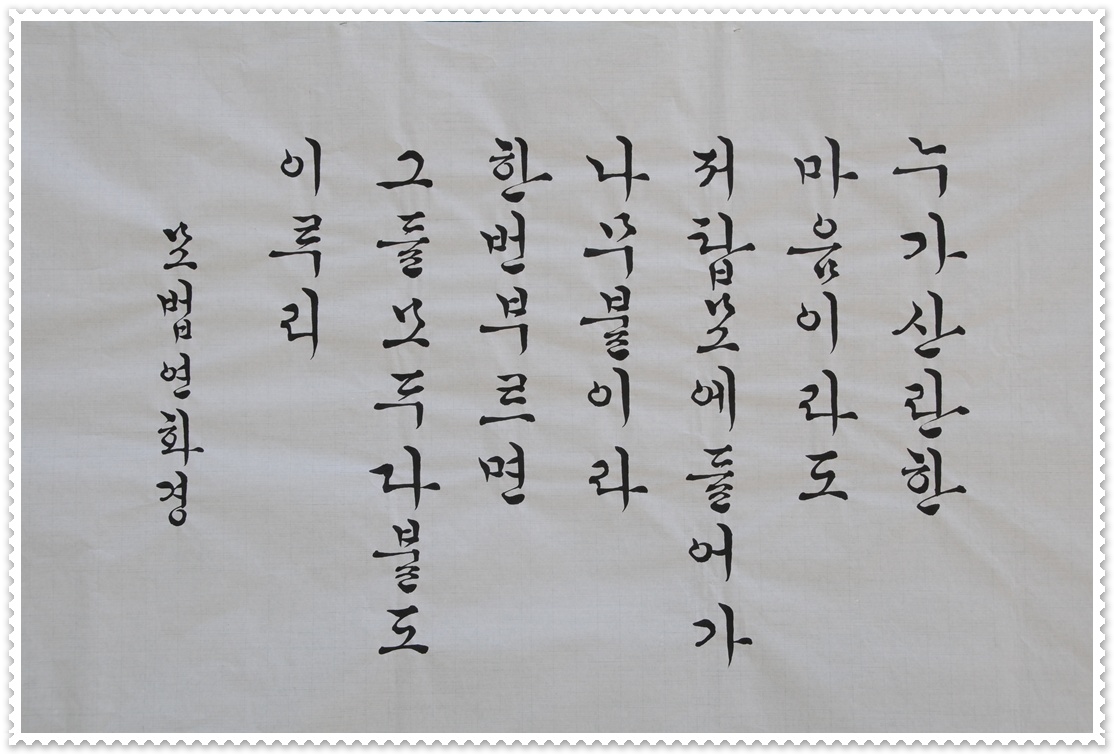 누가산란한
마음이라도
저탑묘에들어가
나무불이라
한번부르면
그들모두다불도
이루리
묘법연화경